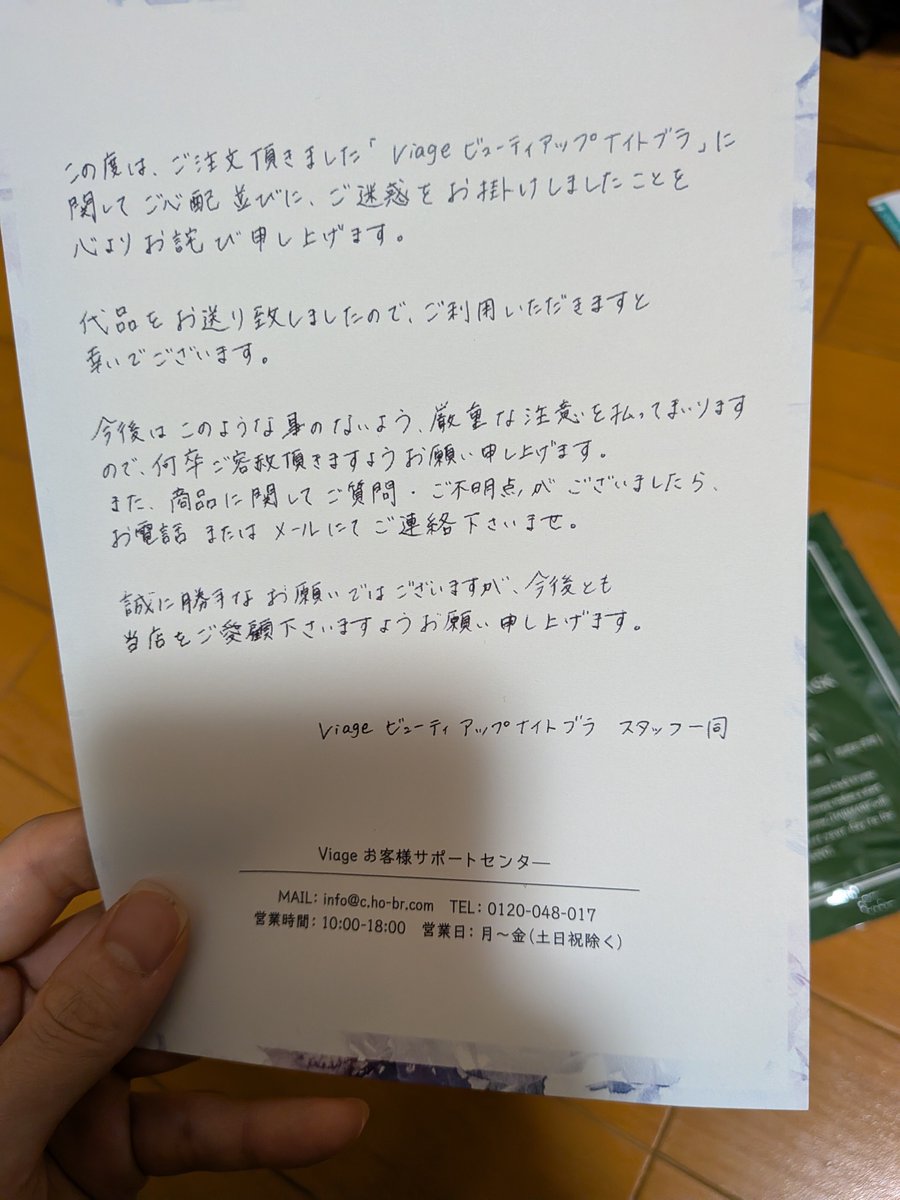 この度は、ご注文頂きました「Viage ビューティアップナイトブラ」に
関してご心配並びに、ご迷惑をお掛けしましたことを
心よりお詫び申し上げます。
代品をお送り致しましたので、ご利用いただきますと
幸いでございます。
今後はこのような事のないよう、厳重な注意を払ってまいります
ので、何卒ご容赦頂きますようお願い申し上げます。
また、商品に関してご質問・ご不明点がございましたら、
お電話またはメールにてご連絡下さいませ。
誠に勝手なお願いではございますが、今後とも
当店をご愛顧下さいますようお願い申し上げます。
Viage ビューティアップナイトブラ スタッフ一同
Viage お客様サポートセンター
MAIL: info@c.ho-br.com TEL: 0120-048-017
営業時間: 10:00-18:00 営業日: 月～金(土日祝除く)